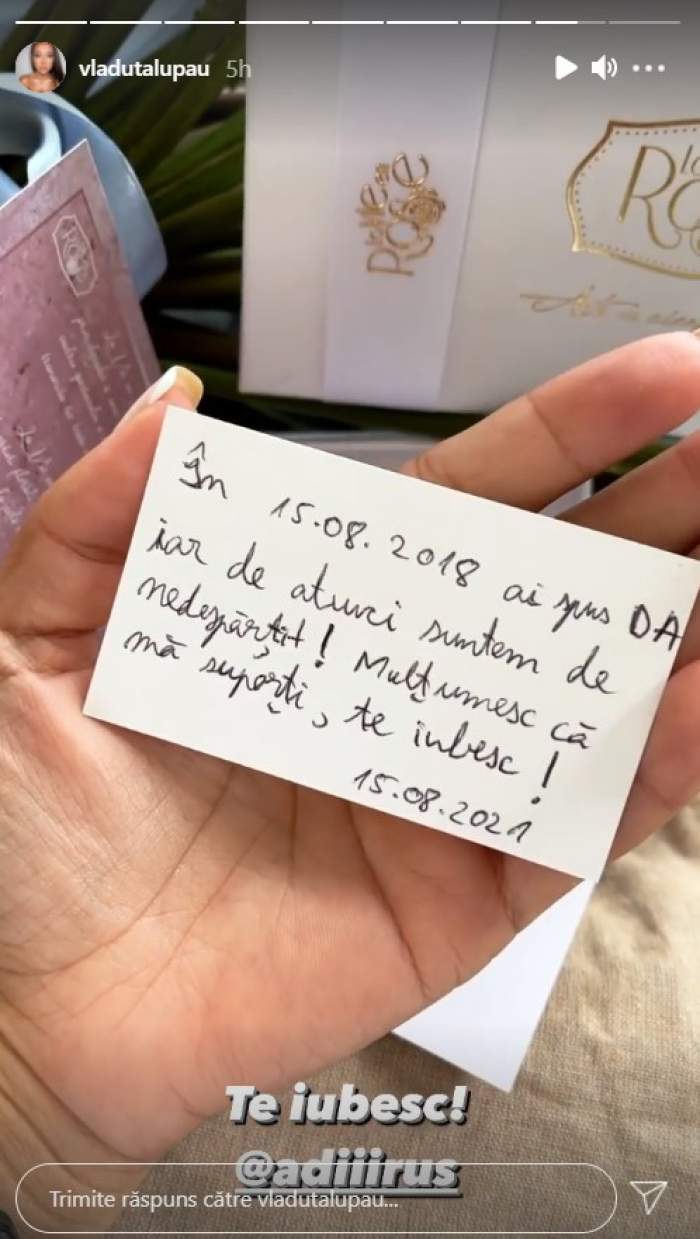 vladutalupau 5h
la vie en
Rose
În 15.08.2018 ai spus DA
iar de atunci suntem de
nedespărțit! Mulțumesc că
mă suporți, te iubesc!
15.08.2021
Te iubesc!
@adiiirus
Trimite răspuns către vladutalupau...